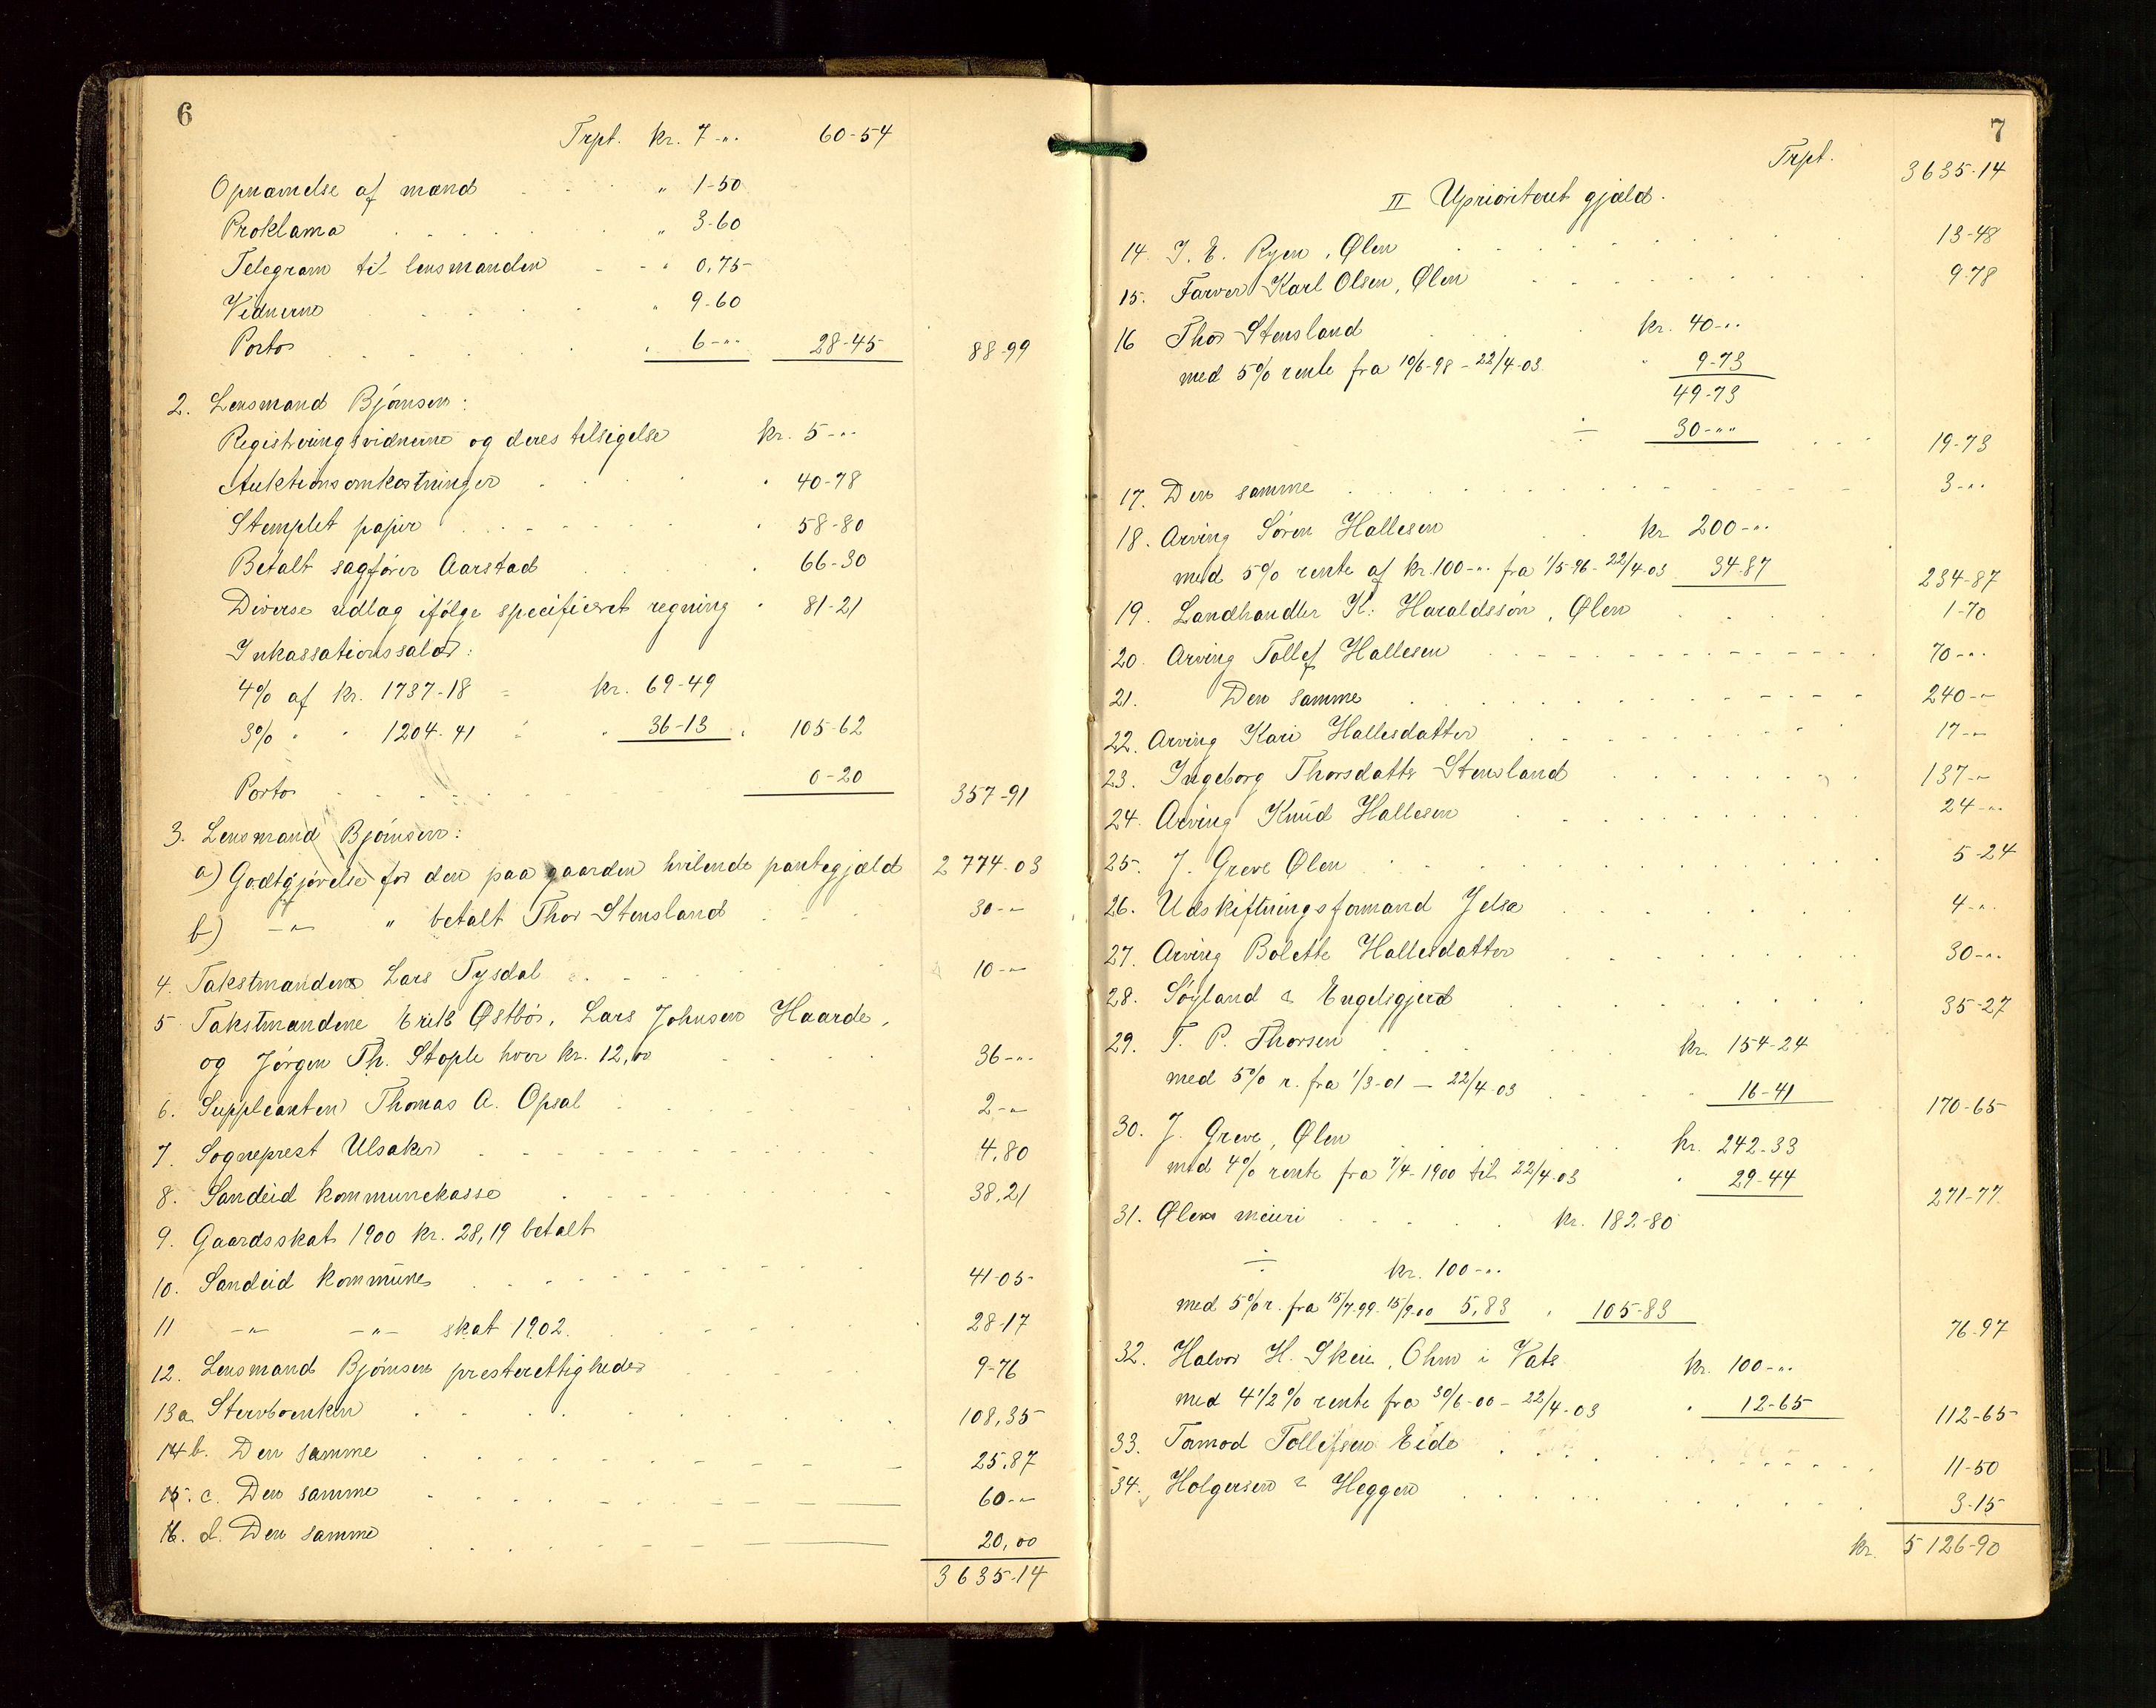 6
Trpt. kr. 7-" 60-54
Opnævnelse af mænd " 1-50
Proklama " 3-60
Telegram til lensmanden " 0,75
Vidnerne " 9-60
Porto " 6-" 28-45 88-99
2. Lensmand Bjørnsen:
Registreringsvidnerne og deres tilsigelse kr. 5-"
Auktionsomkostninger " 40-78
Stemplet papir " 58-80
Betalt sagfører Aarstad " 66-30
Diverse udlæg ifølge specificeret regning " 81-21
Inkassationssalær:
4% af kr. 1737-18 = kr. 69-49
3% " " 1204-41 = " 36-13 " 105-62
Porto 0-20 357-91
3. Lensmand Bjørnsen:
a) Godtgjørelse for den paa gaarden hvilende pantegjæld 2774-03
b) -"- " betalt Thor Stensland 30-"
4. Takstmanden Lars Tysdal 10-"
5. Takstmændene Erik Østbø, Lars Johnsen Haarde,
og Jørgen Th. Stople hver kr. 12,00 36-"
6. Suppleanten Thomas A. Opsal 2-"
7. Sogneprest Ulsaker 4,80
8. Sandeid kommunekasse 38,21
9. Gaardsskat 1900 kr. 28,19 betalt
10. Sandeid kommune 41-05
11 -"- -"- skat 1902. 28-17
12. Lensmand Bjørnsen presterettigheder 9-76
13a Stervboenken 108,35
14 b. Den samme 25,87
15. c. Den samme 60-"
16. d. Den samme 20,00
3635-14
7
Trpt. 3635-14
II Uprioriteret gjæld.
14. J. E. Ryen, Ølen 13-48
15. Farver Karl Olsen, Ølen 9-78
16 Thor Stensland kr. 40-"
med 5% rente fra 10/6-98 - 22/4-03 " 9-73
49-73
÷ 30-"" 19-73
17. Den samme 3-"
18. Arving Søren Hallesen kr 200-"
med 5% rente af kr. 100-" fra 1/5-96 - 22/4-03 34-87 234-87
19. Landhandler K. Haraldssøn, Ølen 1-70
20. Arving Tollef Hallesen 70-"
21. Den samme 240-"
22. Arving Kari Hallesdatter 17-"
23. Ingeborg Thorsdatter Stensland 137-"
24. Arving Knud Hallesen 24-"
25. J. Greve Ølen 5-24
26. Udskiftningsformand Jelsa 4-"
27. Arving Bolette Hallesdatter 30-"
28. Søyland & Engelsgjerd 35-27
29. T. P. Thorsen kr. 154-24
med 5% r. fra 1/3-01 - 22/4-03 " 16-41 170-65
30. J. Greve, Ølen kr. 242-33
med 4% rente fra 7/4-1900 til 22/4-03 " 29-44 271-77
31. Ølens meieri kr. 182-80
÷ kr. 100-"
med 5% r. fra 15/7-99-15/9-00 5,83 " 105-83 76-97
32. Halvor H. Skeie, Ohm i Vats kr. 100-"
med 4 1/2 % rente fra 30/6-00 - 22/4-03 " 12-65 112-65
33. Tormod Tollefsen Eide 11-50
34. Holgersen & Heggen 3-15
kr. 5126-90